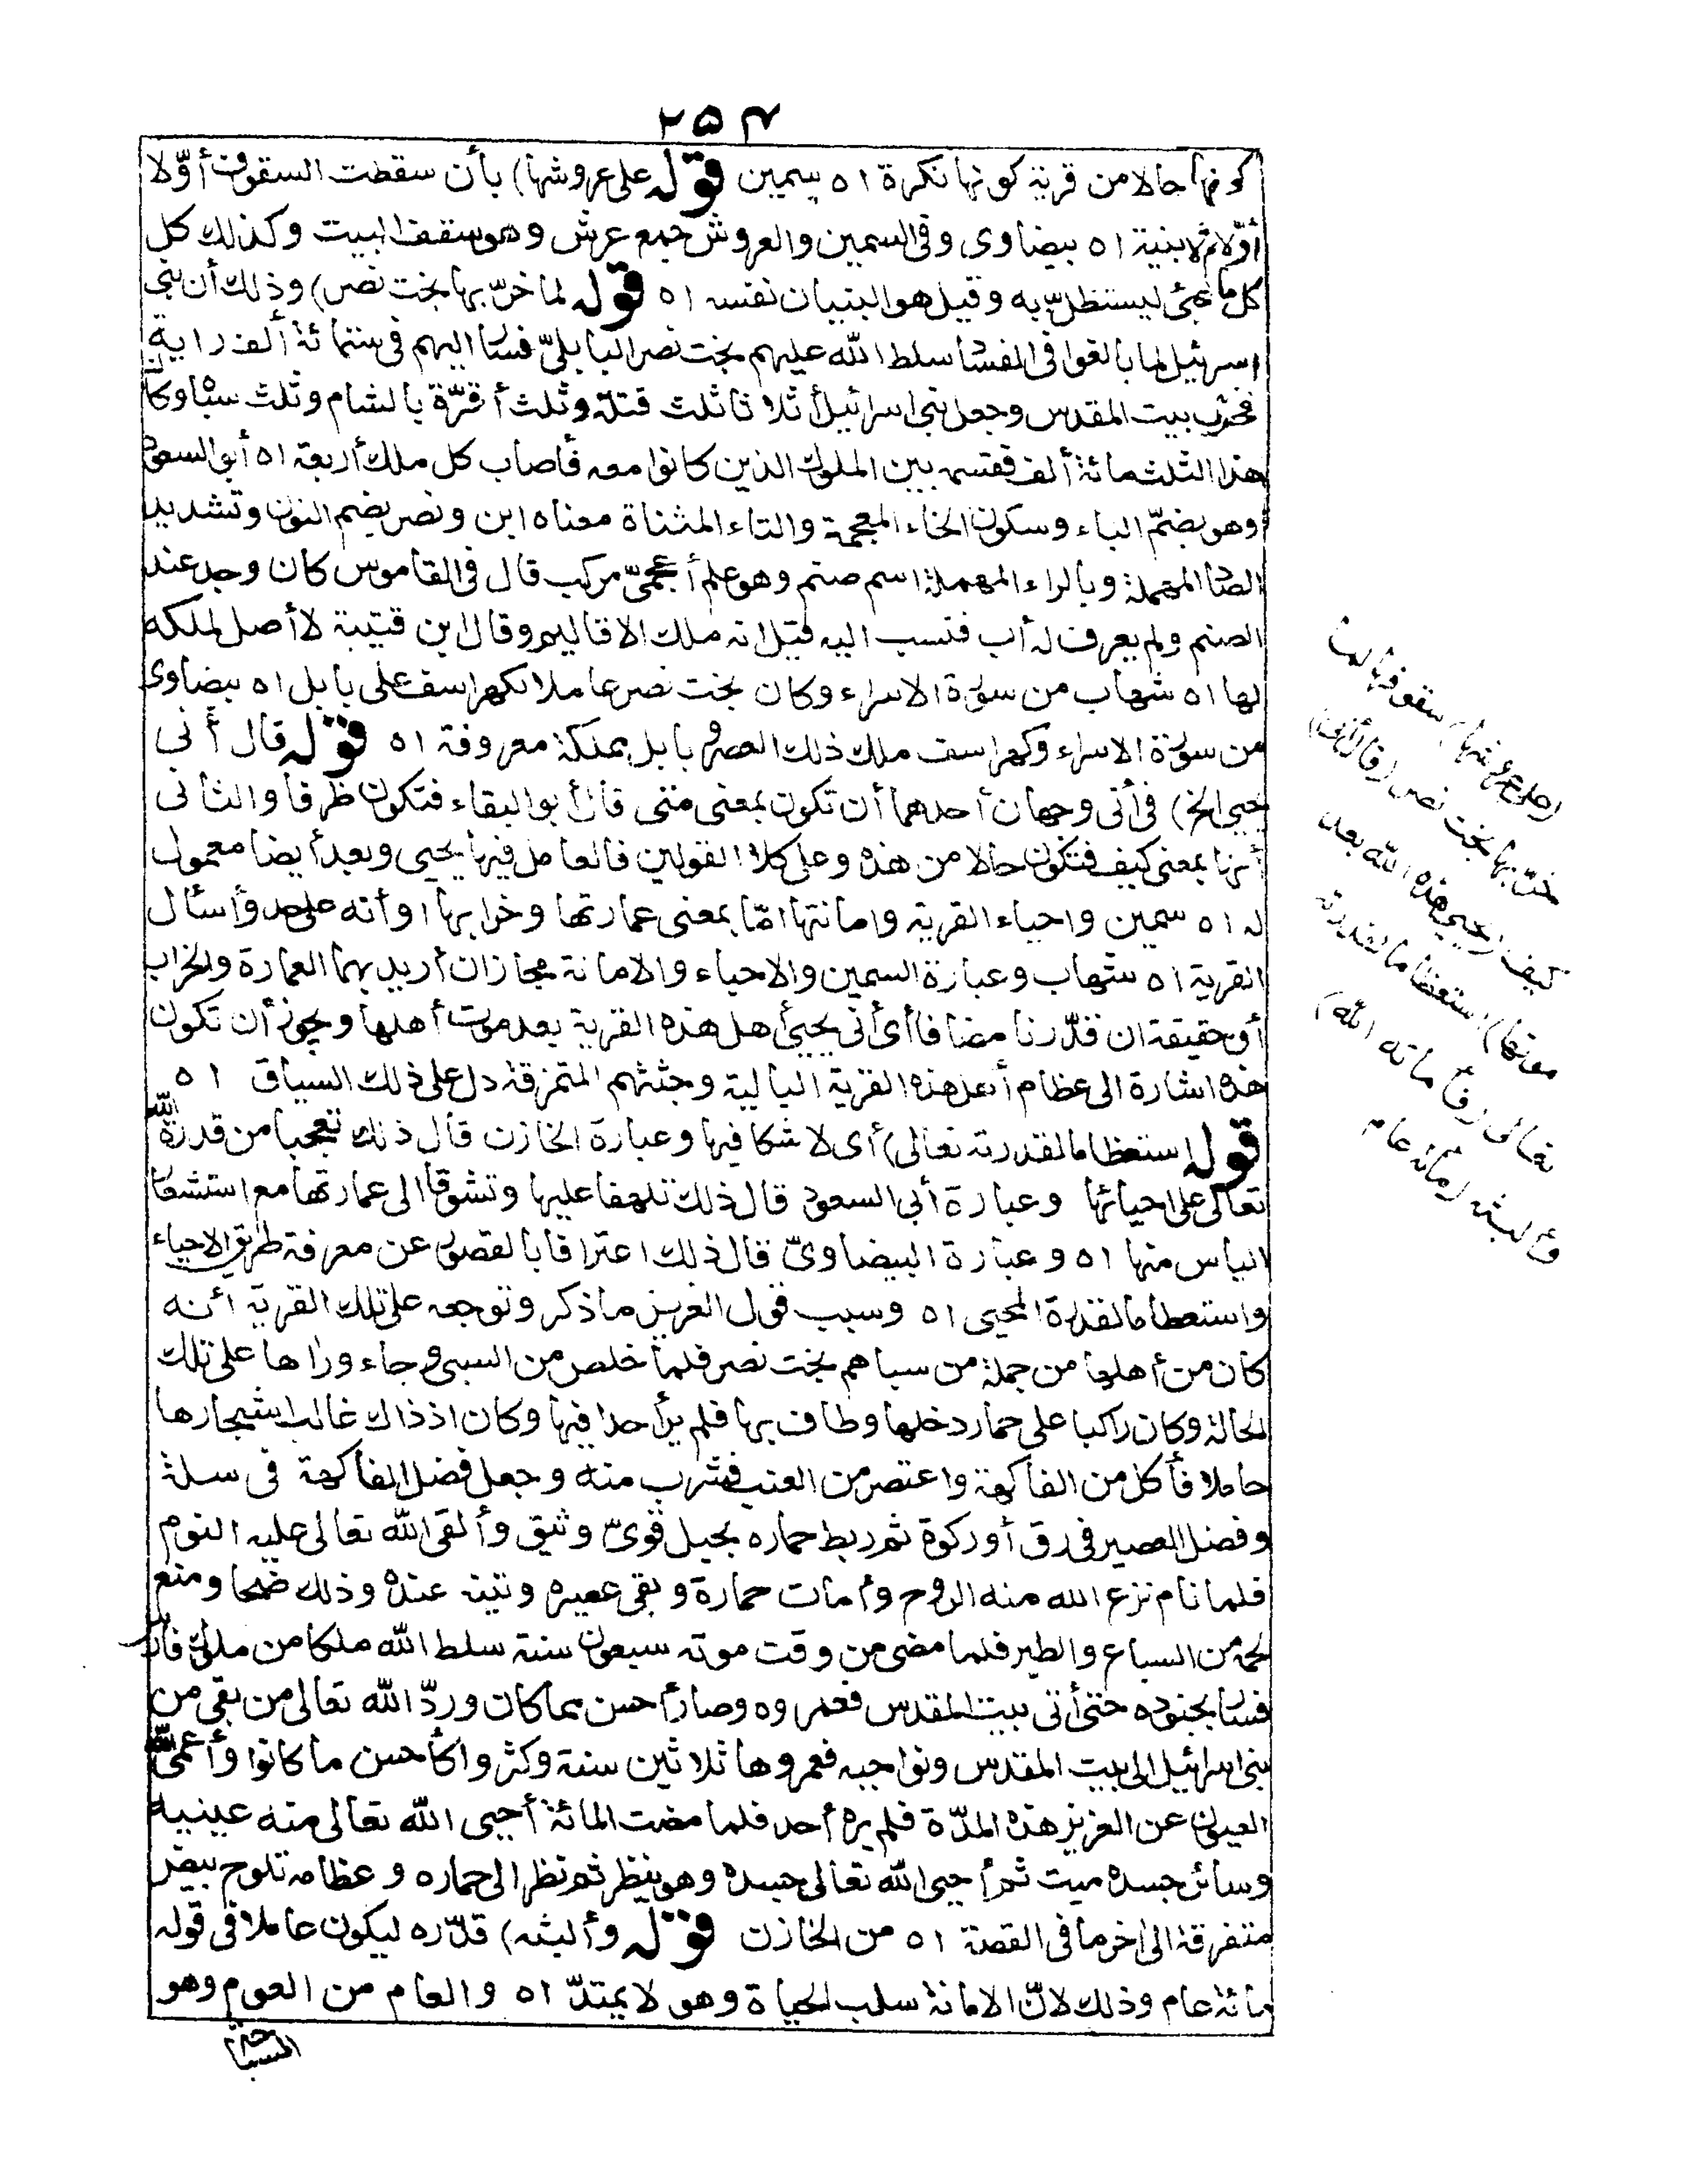 ٢٥٤
كونها حالا من قرية كونها نكرة اه سمين قوله على عروشها) بأن سقطت السقوف أوّلا
أوّلا ثم الابنية اه بيضاوى وفى السمين والعروش جمع عرش وهو سقف البيت وكذلك كل
كل ما هيئ ليستظلّ به وقيل هو البنيان نفسه اه قوله لما خرّبها بخت نصر) وذلك أن بنى
اسرئيل لما بالغوا فى الفساد سلط الله عليهم بخت نصر البابلىّ فسار اليهم فى ستمائة ألف راية
فخرّب بيت المقدس وجعل بنى اسرائيل أثلاثا ثلث قتله وثلث أقرّه بالشام وثلث سباه وكان
هذا الثلث مائة ألف فقسمه بين الملوك الذين كانوا معه فأصاب كل ملك أربعة اه أبو السعود
وهو بضمّ الباء وسكون الخاء المعجمة والتاء المثناة معناه ابن ونصر بضم النون وتشديد
الصاد المهملة وبالراء المهملة اسم صنم وهو علم أعجمىّ مركب قال فى القاموس كان وجد عند
الصنم ولم يعرف له أب فنسب اليه قيل انه ملك الاقاليم وقال ابن قتيبة لا أصل لملكه
لها اه شهاب من سورة الاسراء وكان بخت نصر عاملا لكهراسف على بابل اه بيضاوى
من سورة الاسراء وكهراسف ملك ذلك العصر وبابل مملكة معروفة اه قوله قال أنى
يحيى الخ) فى أنى وجهان أحدهما أن تكون بمعنى متى قال أبو البقاء فتكون ظرفا والثانى
أنها بمعنى كيف فتكون حالا من هذه وعلى كلا القولين فالعامل فيها يحيى وبعد أيضا معمول
له اه سمين واحياء القرية واماتتها امّا بمعنى عمارتها وخرابها أو أنه على حد وأسأل
القرية اه شهاب وعبارة السمين والاحياء والاماتة مجازان أريد بهما العمارة والخراب
أو حقيقة ان قدّرنا مضافا أى أنى يحيى أهل هذه القرية بعد موت أهلها ويجوز أن تكون
هذه اشارة الى عظام أهل هذه القرية البالية وجثثهم المتمزقة دل على ذلك السياق اه
قوله استعظاما لقدرته تعالى) أى لا شكا فيها وعبارة الخازن قال ذلك تعجبا من قدرة الله
تعالى على احيائها وعبارة أبى السعود قال ذلك تلهفا عليها وتشوقا الى عمارتها مع استشعار
الياس منها اه وعبارة البيضاوىّ قال ذلك اعترافا بالقصور عن معرفة طريق الاحياء
واستعظاما لقدرة المحيى اه وسبب قول العزيز ما ذكر وتوجعه على تلك القرية أنه
كان من أهلها من جملة من سباهم بخت نصر فلما خلص من السبى وجاء ورآها على تلك
الحالة وكان راكبا على حمار دخلها وطاف بها فلم ير أحدا فيها وكان اذ ذاك غالب أشجارها
حاملا فأكل من الفاكهة واعتصر من العنب فشرب منه وجعل فضل الفاكهة فى سلة
وفضل العصير فى زق أو ركوة ثم ربط حماره بحبل قوىّ وثيق وألقى الله تعالى عليه النوم
فلما نام نزع الله منه الروح وأمات حماره وبقى عصيره وتينه عنده وذلك ضحا ومنع
لحمه من السباع والطير فلما مضى من وقت موته سبعون سنة سلط الله ملكا من ملوك فارس
فسار بجنوده حتى أتى بيت المقدس فعمروه وصار أحسن مما كان وردّ الله تعالى من بقى من
بنى اسرائيل الى بيت المقدس ونواحيه فعمروها ثلاثين سنة وكثروا كأحسن ما كانوا وأعمى الله
العيون عن العزيز هذه المدّة فلم يره أحد فلما مضت المائة أحيى الله تعالى منه عينيه
وسائر جسده ميت ثم أحيى الله تعالى جسده وهو ينظر ثم نظر الى حماره وعظامه تلوح بيض
متفرقة الى اخر ما فى القصة اه من الخازن قوله وألبثه) قدّره ليكون عاملا فى قوله
مائة عام وذلك لانّ الاماتة سلب الحياة وهو لا يمتدّ اه والعام من العوم وهو
السباحة
(على عروشها) سقوفها لما
خرّبها بخت نصر (قال أنى)
كيف (يحيى هذه الله بعد
موتها) استعظاما لقدرته
تعالى (فأماته الله)
وألبثه (مائة عام